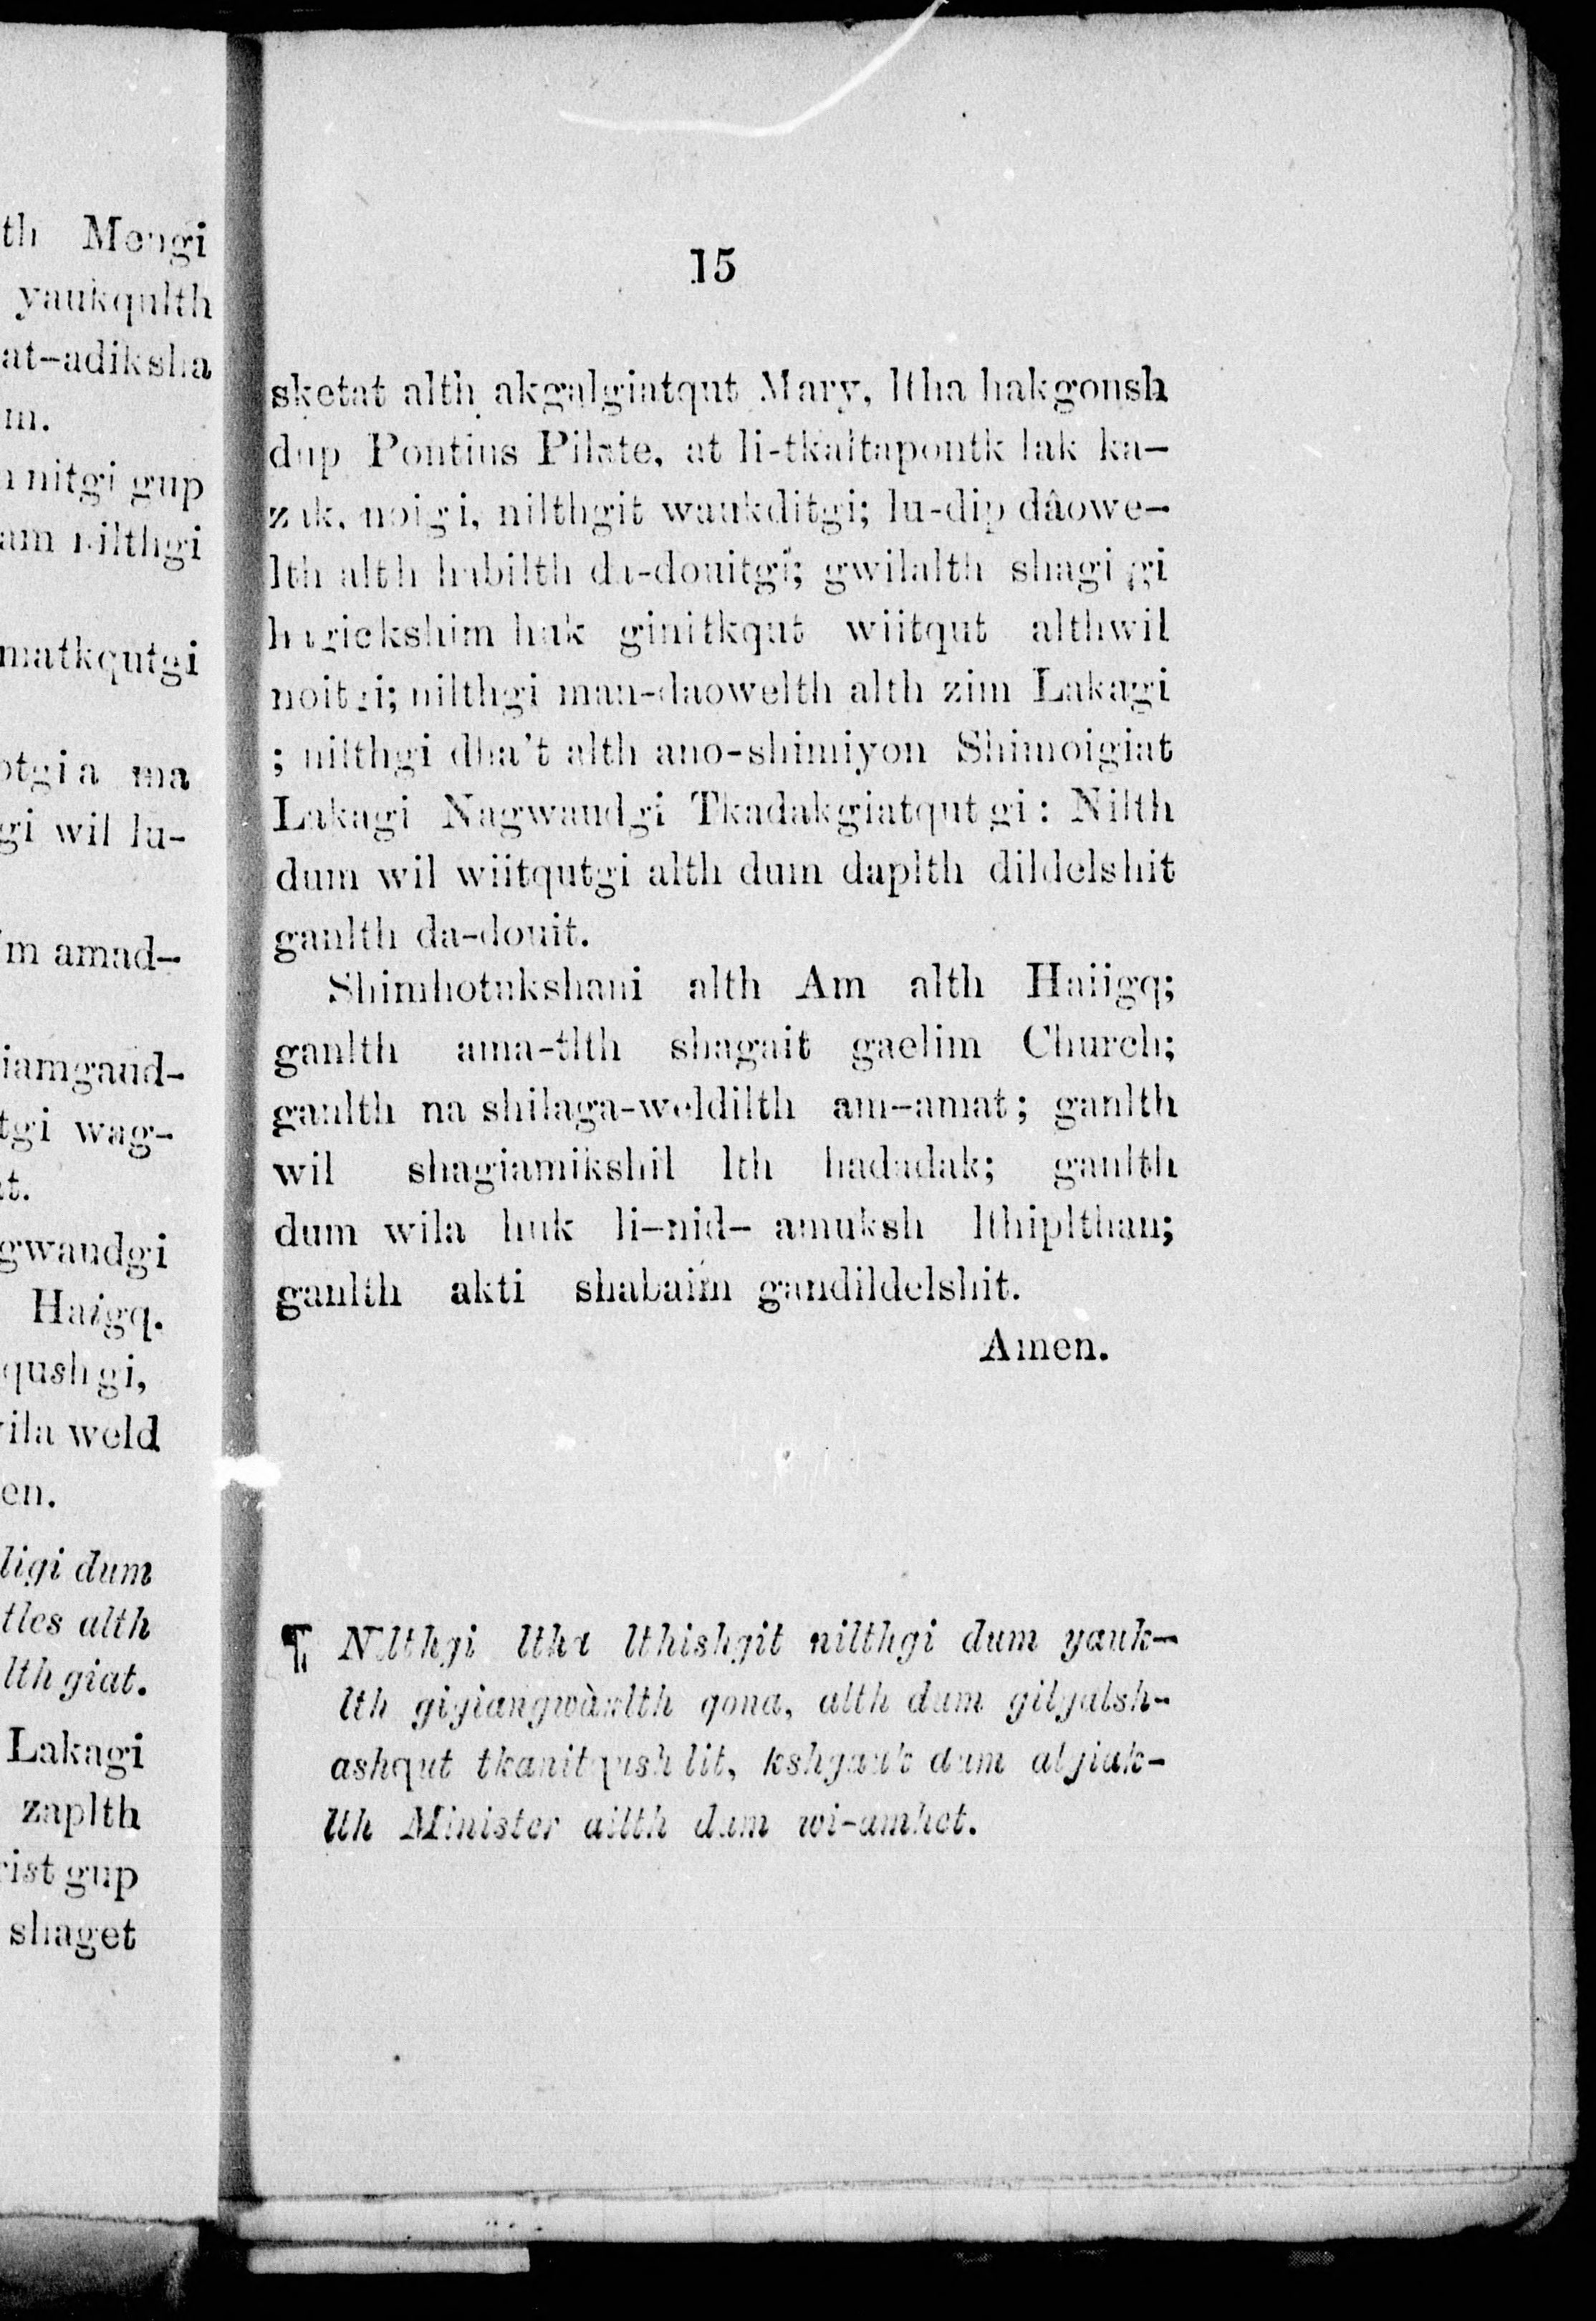 th Mengi
yaukqulth
at-adiksha
m.
nitgi gup
am nilthgi
matkqutgi
otgia ma
gi wil lu-
'm amad-
iamgaud-
tgi wag-
t.
gwaudgi
Haigq.
qushgi,
ila weld
en.
ligi dum
tles alth
lth giat.
Lakagi
zaplth
rist gup
shaget
15
sketat alth akgalgiatqut Mary, ltha hakgonsh
dup Pontius Pilate, at li-tkaltapontk lak ka-
zak, noigi, nilthgit waukditgi; lu-dip dâowe-
lth alth habilth da-douitgi; gwilalth shagi gi
hagickshim huk ginitkqut wiitqut althwil
noitgi; nilthgi man-daowelth alth zim Lakagi
; nilthgi dha't alth ano-shimiyon Shimoigiat
Lakagi Nagwaudgi Tkadakgiatqutgi: Nilth
dum wil wiitqutgi alth dum daplth dildelshit
ganlth da-douit.
Shimhotukshani alth Am alth Haiigq;
ganlth ama-tlth shagait gaelim Church;
ganlth na shilaga-weldilth am-amat; ganlth
wil shagiamikshil lth hadadak; ganlth
dum wila huk li-nid- amuksh lthiplthan;
ganlth akti shabaim gandildelshit.
Amen.
¶ Nilthgi ltha lthishgit nilthgi dum yauk-
lth gigiangwàxlth qona, alth dum gilgalsh-
ashqut tkanitqush lit, kshgauk dum algiak-
lth Minister ailth dum wi-amhet.